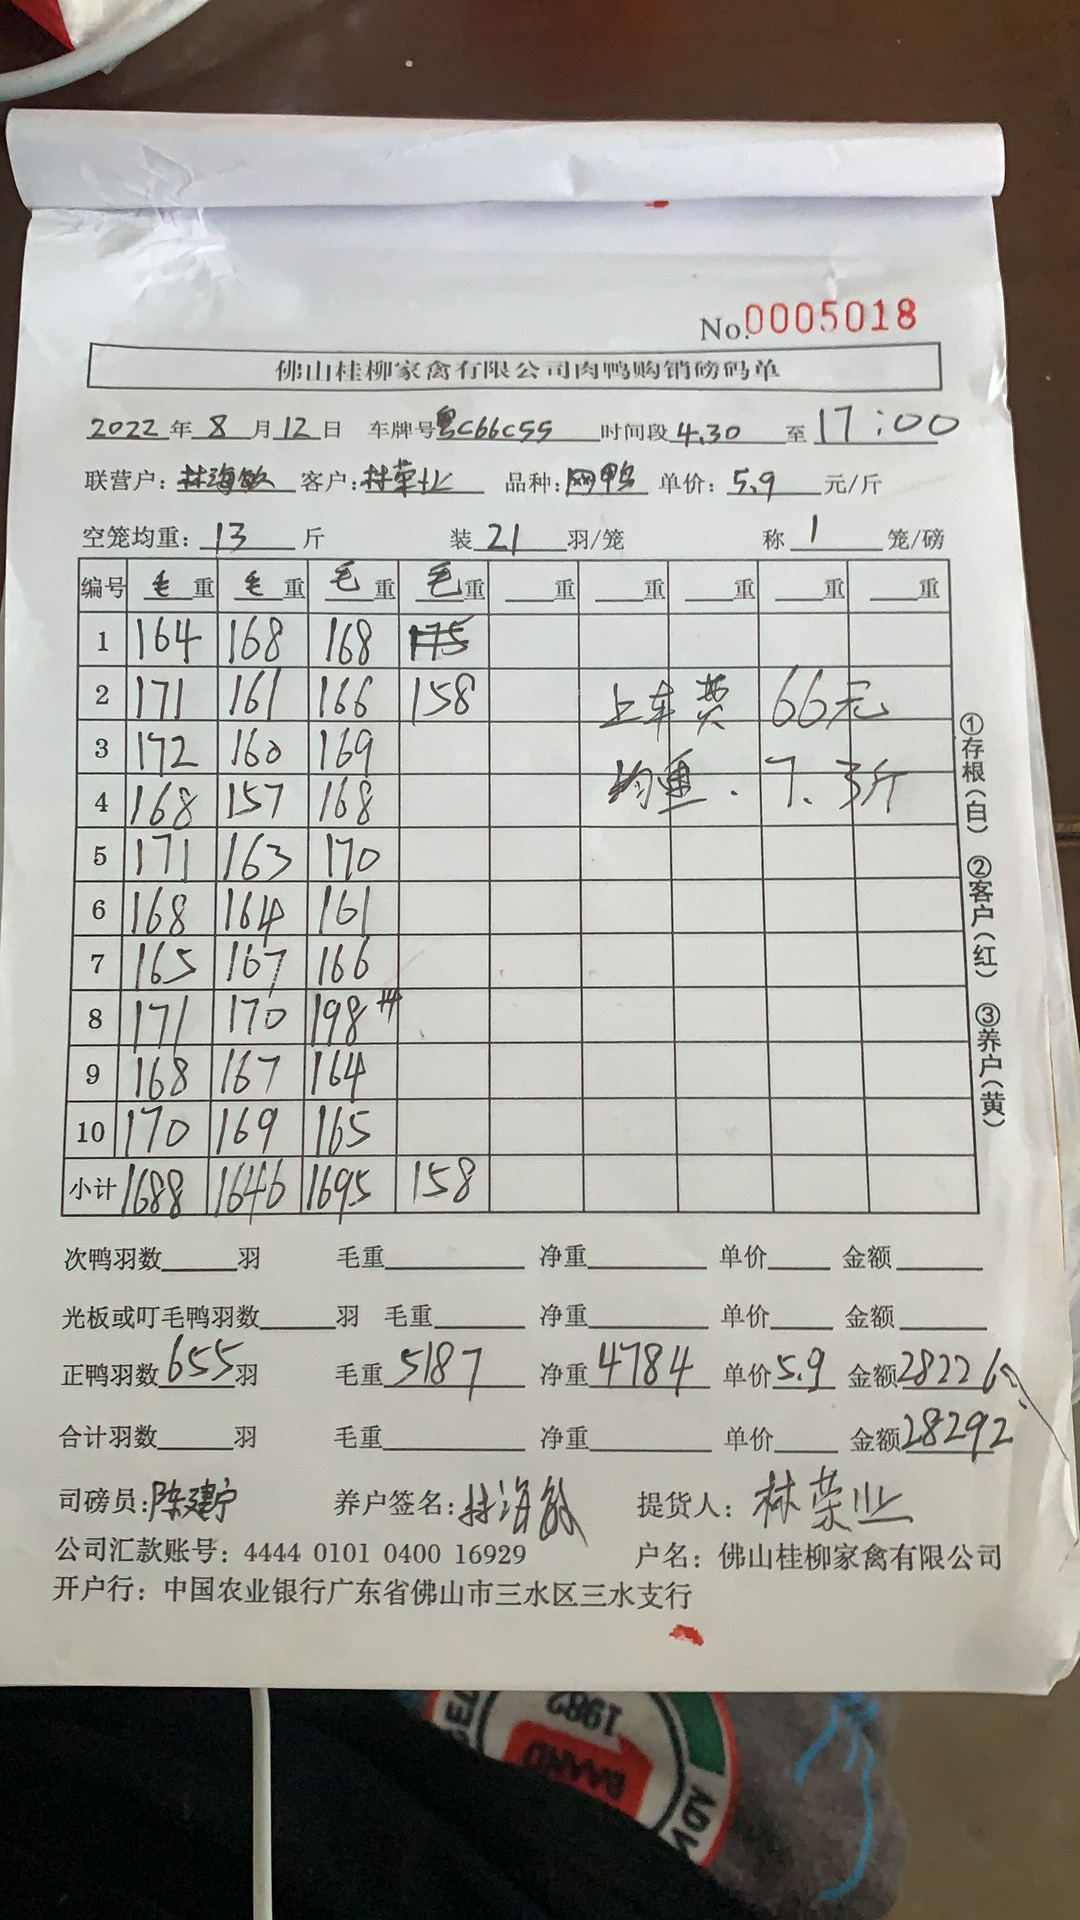 No.0005018
佛山桂柳家禽有限公司肉鸭购销磅码单
2022年8月12日 车牌号粤C66C55 时间段4.30至17:00
联营户：林海敏 客户：林荣业 品种：网鸭 单价：5.9元/斤
空笼均重：13斤 装21羽/笼 称1笼/磅
编号 毛重 毛重 毛重 毛重 重 重 重 重 重
1 164 168 168 175
2 171 161 166 158 上车费 66元
3 172 160 169 均重. 7.3斤
4 168 157 168
5 171 163 170
6 168 164 161
7 165 167 166
8 171 170 198
9 168 167 164
10 170 169 165
小计 1688 1646 1695 158
①存根(白) ②客户(红) ③养户(黄)
次鸭羽数 羽 毛重 净重 单价 金额
光板或叮毛鸭羽数 羽 毛重 净重 单价 金额
正鸭羽数655羽 毛重5187 净重4784 单价5.9 金额28226
合计羽数 羽 毛重 净重 单价 金额28292
司磅员：陈建宁 养户签名：林海敏 提货人：林荣业
公司汇款账号：4444 0101 0400 16929 户名：佛山桂柳家禽有限公司
开户行：中国农业银行广东省佛山市三水区三水支行
1982